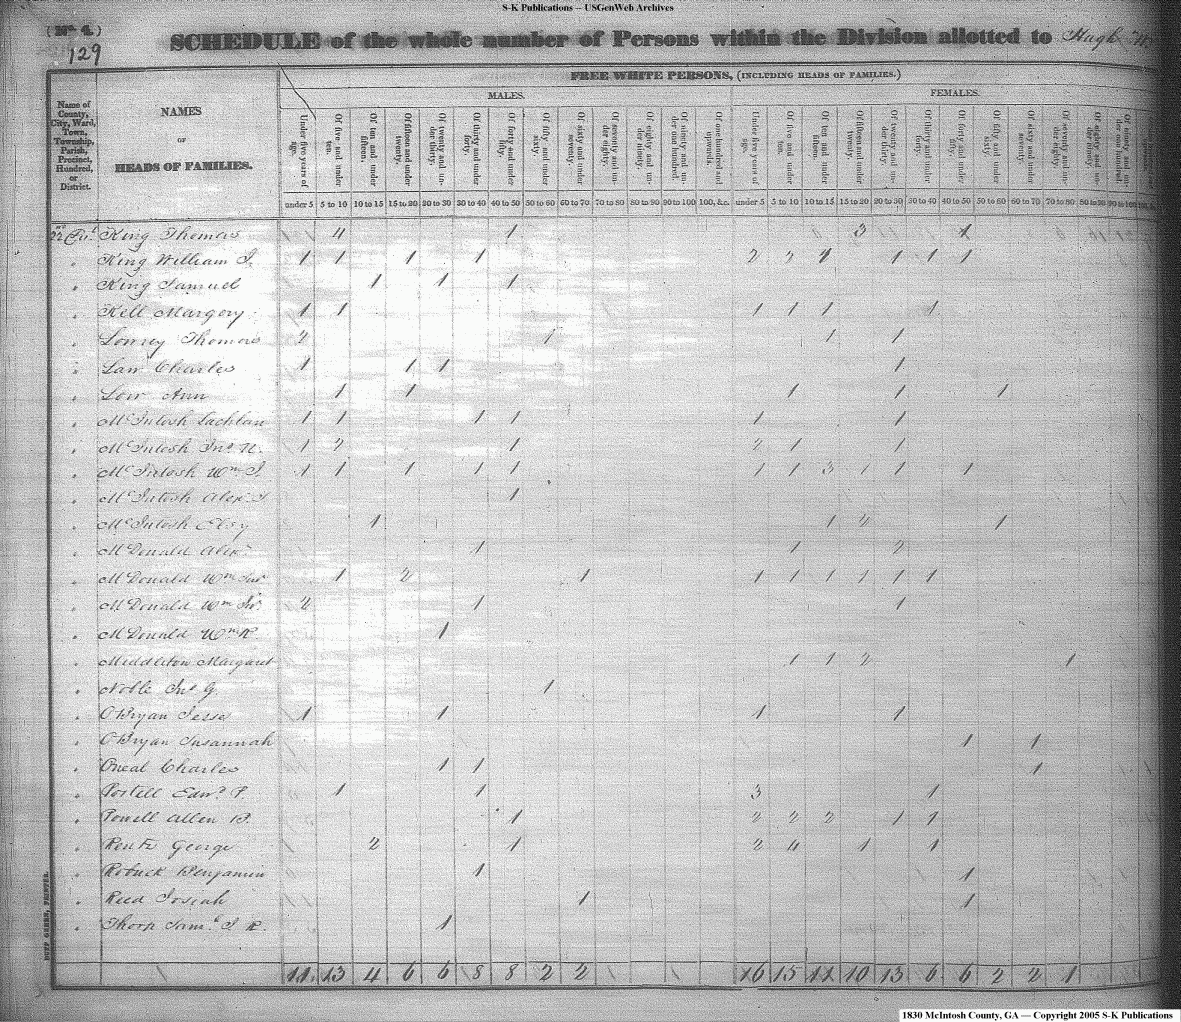 S-K Publications – USGenWeb Archives
( No. 4. )
129
SCHEDULE of the whole number of Persons within the Division allotted to Hugh
Name of County, City, Ward, Town, Township, Parish, Precinct, Hundred, or District.
NAMES
OF
HEADS OF FAMILIES.
FREE WHITE PERSONS, (INCLUDING HEADS OF FAMILIES.)
MALES. FEMALES.
Under five years of age. Of five and under ten. Of ten and under fifteen. Of fifteen and under twenty. Of twenty and under thirty. Of thirty and under forty. Of forty and under fifty. Of fifty and under sixty. Of sixty and under seventy. Of seventy and under eighty. Of eighty and under ninety. Of ninety and under one hundred. Of one hundred and upwards. Under five years of age. Of five and under ten. Of ten and under fifteen. Of fifteen and under twenty. Of twenty and under thirty. Of thirty and under forty. Of forty and under fifty. Of fifty and under sixty. Of sixty and under seventy. Of seventy and under eighty.
under 5 5 to 10 10 to 15 15 to 20 20 to 30 30 to 40 40 to 50 50 to 60 60 to 70 70 to 80 80 to 90 90 to 100 100, &c. under 5 5 to 10 10 to 15 15 to 20 20 to 30 30 to 40 40 to 50 50 to 60 60 to 70 70 to 80 80 to 90 90 to 100
King Thomas 4 1 3 1
King William J. 1 1 1 1 2 2 1 1 1 1
King Samuel 1 1 1
Kell Margery 1 1 1 1 1 1
Thomas 2 1 1 1
Law Charles 1 1 1 1
Low Ann 1 1 1 1 1
McIntosh Lachlan 1 1 1 1 1 1
McIntosh Jno. N. 1 2 1 2 1 1
McIntosh Wm J. 1 1 1 1 1 1 1 3 1 1
McIntosh Alexr 1
McIntosh 1 1 2 1
McDonald Alexr 1 1 2
McDonald Wm 1 2 1 1 1 1 1 1 1
McDonald Wm 2 1 1
McDonald Wm R. 1
Middleton Margaret 1 1 2 1
Noble Jno G. 1
OBryan Jesse 1 1 1 1
OBryan Susannah 1 1
Oneal Charles 1 1 1
Postell Edwd P. 1 1 3 1
Powell Allen B. 1 2 2 2 1 1
Rentz George 2 1 2 4 1 1
Robuck Benjamin 1 1
Reed Josiah 1 1
Thorp Saml J R. 1
11 13 4 6 6 8 8 2 2 16 15 12 10 13 6 6 2 2 1
DUFF GREEN, PRINTER.
1830 McIntosh County, GA — Copyright 2005 S-K Publications